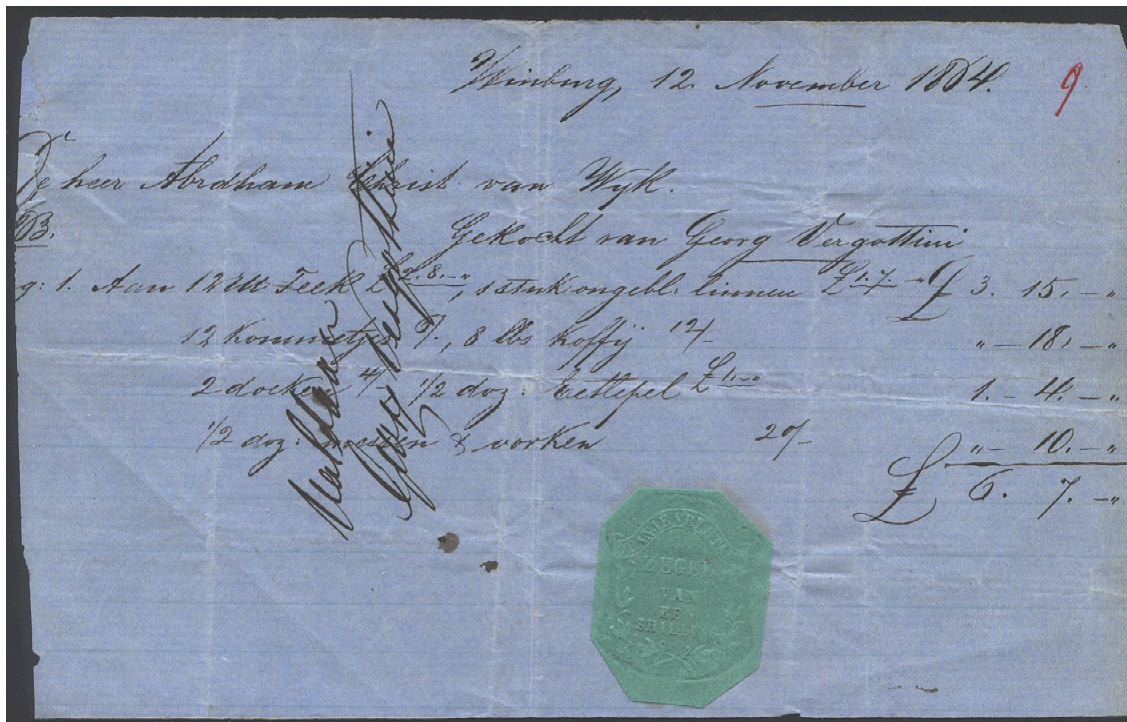 Winburg, 12. November 1864. 9
De heer Abraham Christ. van Wyk.
Gekocht van Georg Vergottini
1. Aan 12 Feek £2.8.–„, 1 stuk ongebl. linnen £1.7.–„ £ 3. 15.–„
12 Kommetjes 6/., 8 lbs Koffij 12/– „– 18.–„
2 doeken 4/– 1/2 doz: Eetlepel £1.–„ 1.– 4.–„
1/2 doz: messen & vorken 20/– „– 10.–„
£ 6. 7.–„
Voldaan
Georg Vergottini
ZEGEL
VAN
SHILLING